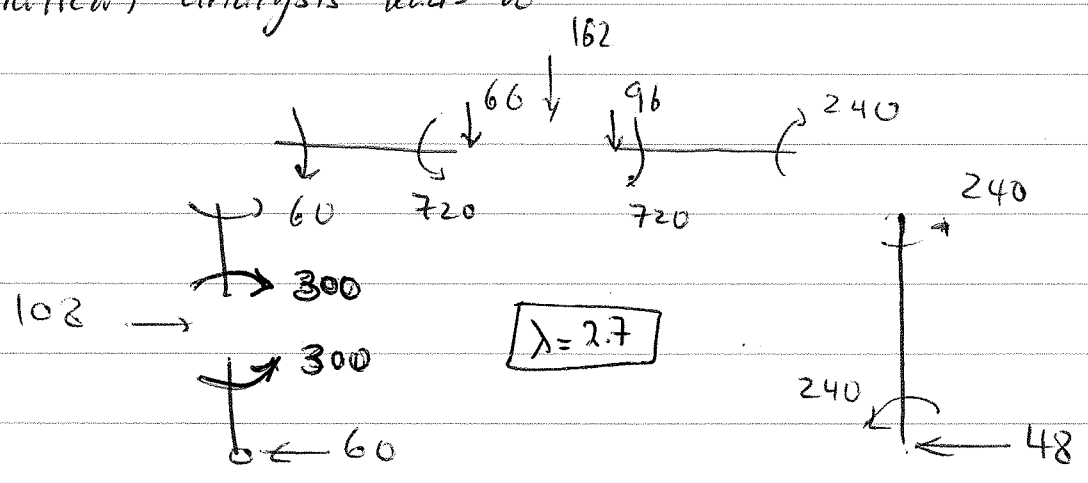 analysis
162
66 96 240
60 720 720 240
300
108
λ = 2.7
300
240
60 48